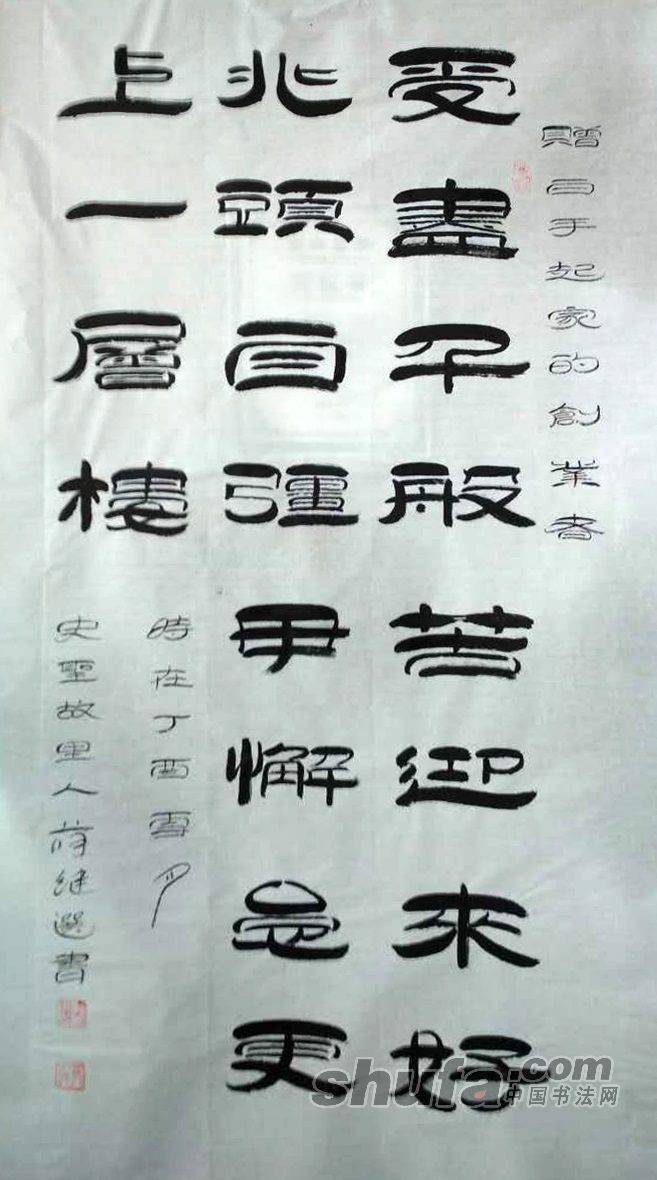 贈白手起家的創業者
受盡千般苦迎來好
兆頭自彊毋懈怠更
上一層樓
時在丁酉雪月
史聖故里人継選書
shufa.com
中国书法网